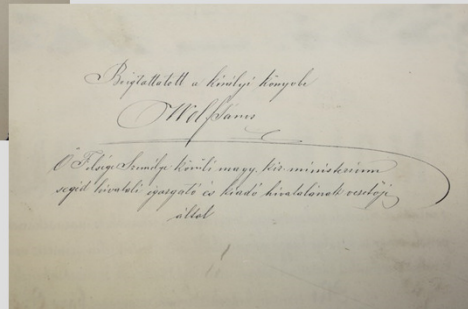 Beigtattatott a királyi könyvbe
Wolf János
Ő Felsége Személye körüli magy. kir. ministerium
segéd hivatali igazgató és kiadó hivatalának vezetője
által